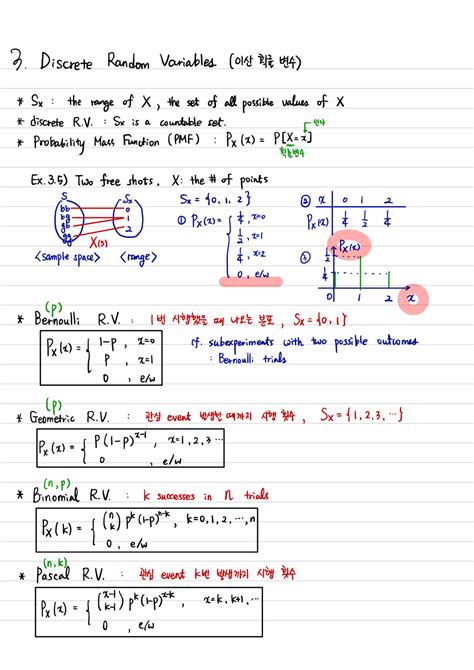 3. Discrete Random Variables (이산 확률 변수)
* Sx : the range of X, the set of all possible values of X
* discrete R.V. : Sx is a countable set.
* Probability Mass Function (PMF) : Px(x) = P[X=x]
인자
확률변수
Ex.3.5) Two free shots, X: the # of points
S Sx
bb 0
bg 1
gb 2
gg
X(s)
<sample space> <range>
Sx = {0, 1, 2}
① Px(x) = { 1/4, x=0
1/2, x=1
1/4, x=2
0, e/w
② x 0 1 2
Px(x) 1/4 1/2 1/4
③ Px(x)
1/2
1/4
0 1 2 x
(p)
* Bernoulli R.V. : 1번 시행했을 때 나오는 분포, Sx = {0, 1}
Px(x) = { 1-p, x=0
p, x=1
0, e/w
cf. subexperiments with two possible outcomes
: Bernoulli trials
(p)
* Geometric R.V. : 관심 event 발생한 때까지 시행 횟수, Sx = {1, 2, 3, ⋯}
Px(x) = { p(1-p)^{x-1}, x=1, 2, 3 ⋯
0, e/w
(n, p)
* Binomial R.V. : k successes in n trials
Px(k) = { (n k) p^k (1-p)^{n-k}, k=0, 1, 2, ⋯, n
0, e/w
(n, k)
* Pascal R.V. : 관심 event k번 발생까지 시행 횟수
Px(x) = { (x-1 k-1) p^k (1-p)^{x-k}, x=k, k+1, ⋯
0, e/w